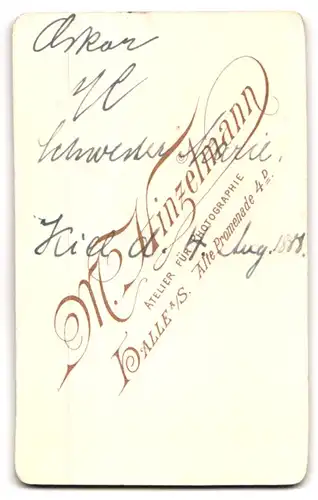 Oskar
Schwester Marie.
Kiel d. 4. Aug. 1888.
M. Hinzelmann
ATELIER FÜR PHOTOGRAPHIE
HALLE A/S. Alte Promenade 4 D.